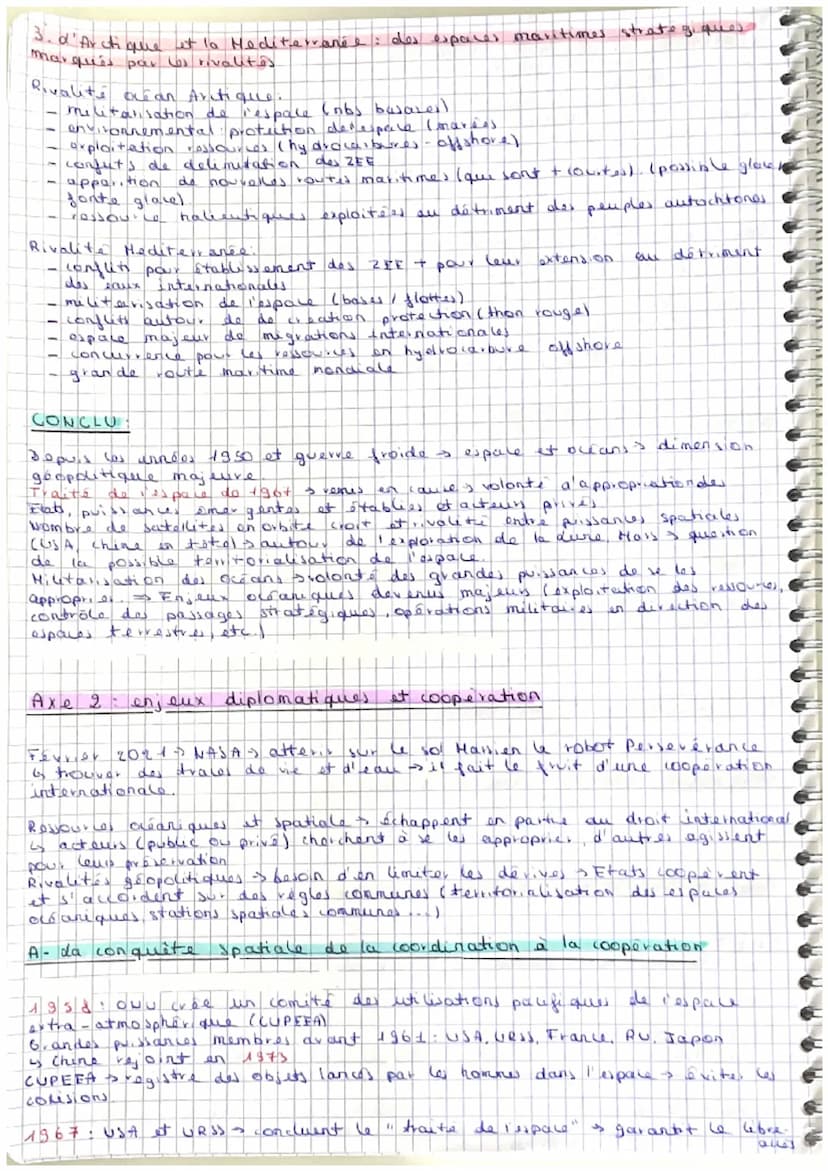 3. d'Arctique et la Mediterranée : des espaces maritimes stratégiques
marqués par les rivalités
Rivalité océan Arctique :
- militarisation de l'espace (nbs bases)
- environnemental : protection de l'espace (marées
- exploitation ressources (hydrocarbures - offshore)
- conflits de délimitation des ZEE
- apparition de nouvelles routes maritimes (qui sont + courtes). (possible
fonte glace)
- ressource halieutiques exploitées au détriment des peuples autochtones
Rivalité Mediterranée :
- conflits pour établissement des ZEE + pour leur extension au détriment
des eaux internationales
- militarisation de l'espace (bases / flottes)
- conflits autour de de création protection (thon rouge)
- espace majeur de migrations internationales
- concurrence pour les ressources en hydrocarbure offshore
- grande route maritime mondiale
CONCLU :
Depuis les années 1950 et guerre froide → espace et océans → dimension
géopolitique majeure.
Traité de l'espace de 1967 → remis en cause → volonté d'appropriation des
Etats, puissances émergentes et établies et acteurs privés
Nombre de satellites en orbite croit et rivalité entre puissances spatiales
(USA, Chine en tête) → autour de l'exploration de la Lune. Mais → question
de la possible territorialisation de l'espace.
Militarisation des océans → volonté des grandes puissances de se les
approprier. ⇒ Enjeux océaniques devenus majeurs (exploitation des ressources,
contrôle des passages stratégiques, opérations militaires en direction des
espaces terrestres, etc.)
Axe 2 : enjeux diplomatiques et coopération
Février 2021 → NASA → atterir sur le sol Marsien le robot Perseverance
↳ trouver des traces de vie et d'eau → il fait le fruit d'une coopération
internationale.
Ressources océaniques et spatiale → échappent en partie au droit international
↳ acteurs (public ou privé) cherchent à se les approprier, d'autres agissent
pour leurs préservation
Rivalités géopolitiques → besoin d'en limiter les dérives → Etats coopèrent
et s'accordent sur des règles communes (territorialisation des espaces
océaniques, stations spatiales communes ...)
A- La conquête spatiale de la coordination à la coopération
1958 : ONU crée un comité des utilisations pacifiques de l'espace
extra-atmosphérique (CUPEEA)
Grandes puissances membres avant 1961 : USA, URSS, France, RU, Japon
↳ Chine rejoint en 1973
CUPEEA → registre des objets lancés par les hommes dans l'espace → éviter les
colisions.
1967 : USA et URSS → concluent le "traité de l'espace" → garantit le libre-
accès